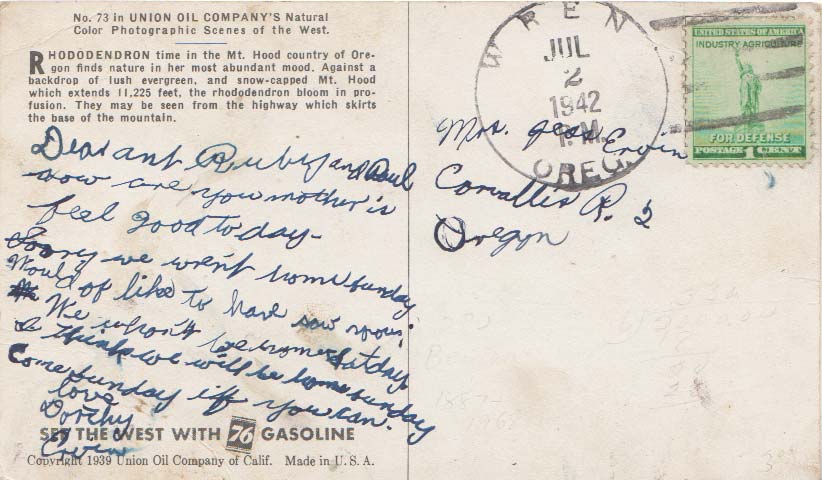 No. 73 in UNION OIL COMPANY'S Natural
Color Photographic Scenes of the West.
RHODODENDRON time in the Mt. Hood country of Ore-
gon finds nature in her most abundant mood. Against a
backdrop of lush evergreen, and snow-capped Mt. Hood
which extends 11,225 feet, the rhododendron bloom in pro-
fusion. They may be seen from the highway which skirts
the base of the mountain.
Dear ant Ruby and Paul
how are you mother is
feel good today-
Sorry we wern't home sunday.
Would of like to have saw you.
We whon't be home Satday
I think we will be home sunday
Come sunday iff you can.
love
Dorthy
Ervin
SEE THE WEST WITH 76 GASOLINE
Copyright 1939 Union Oil Company of Calif. Made in U. S. A.
WREN
JUL
2
1942
P.M.
OREG.
UNITED STATES OF AMERICA
INDUSTRY AGRICULTURE
FOR DEFENSE
POSTAGE 1 CENT
Mrs. Jess Ervin
Corvallis R. 2
Oregon
1887-